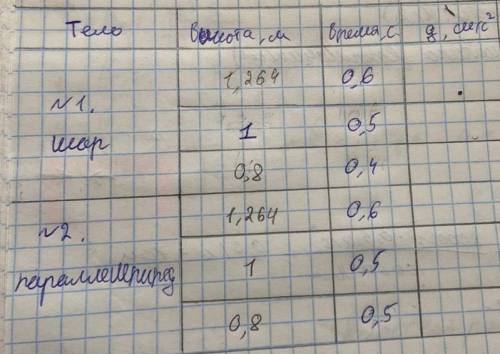 Тело Высота, м Время, с g, м/с²
№1. 1,264 0,6
шар 1 0,5
0,8 0,4
№2. 1,264 0,6
параллелепипед 1 0,5
0,8 0,5